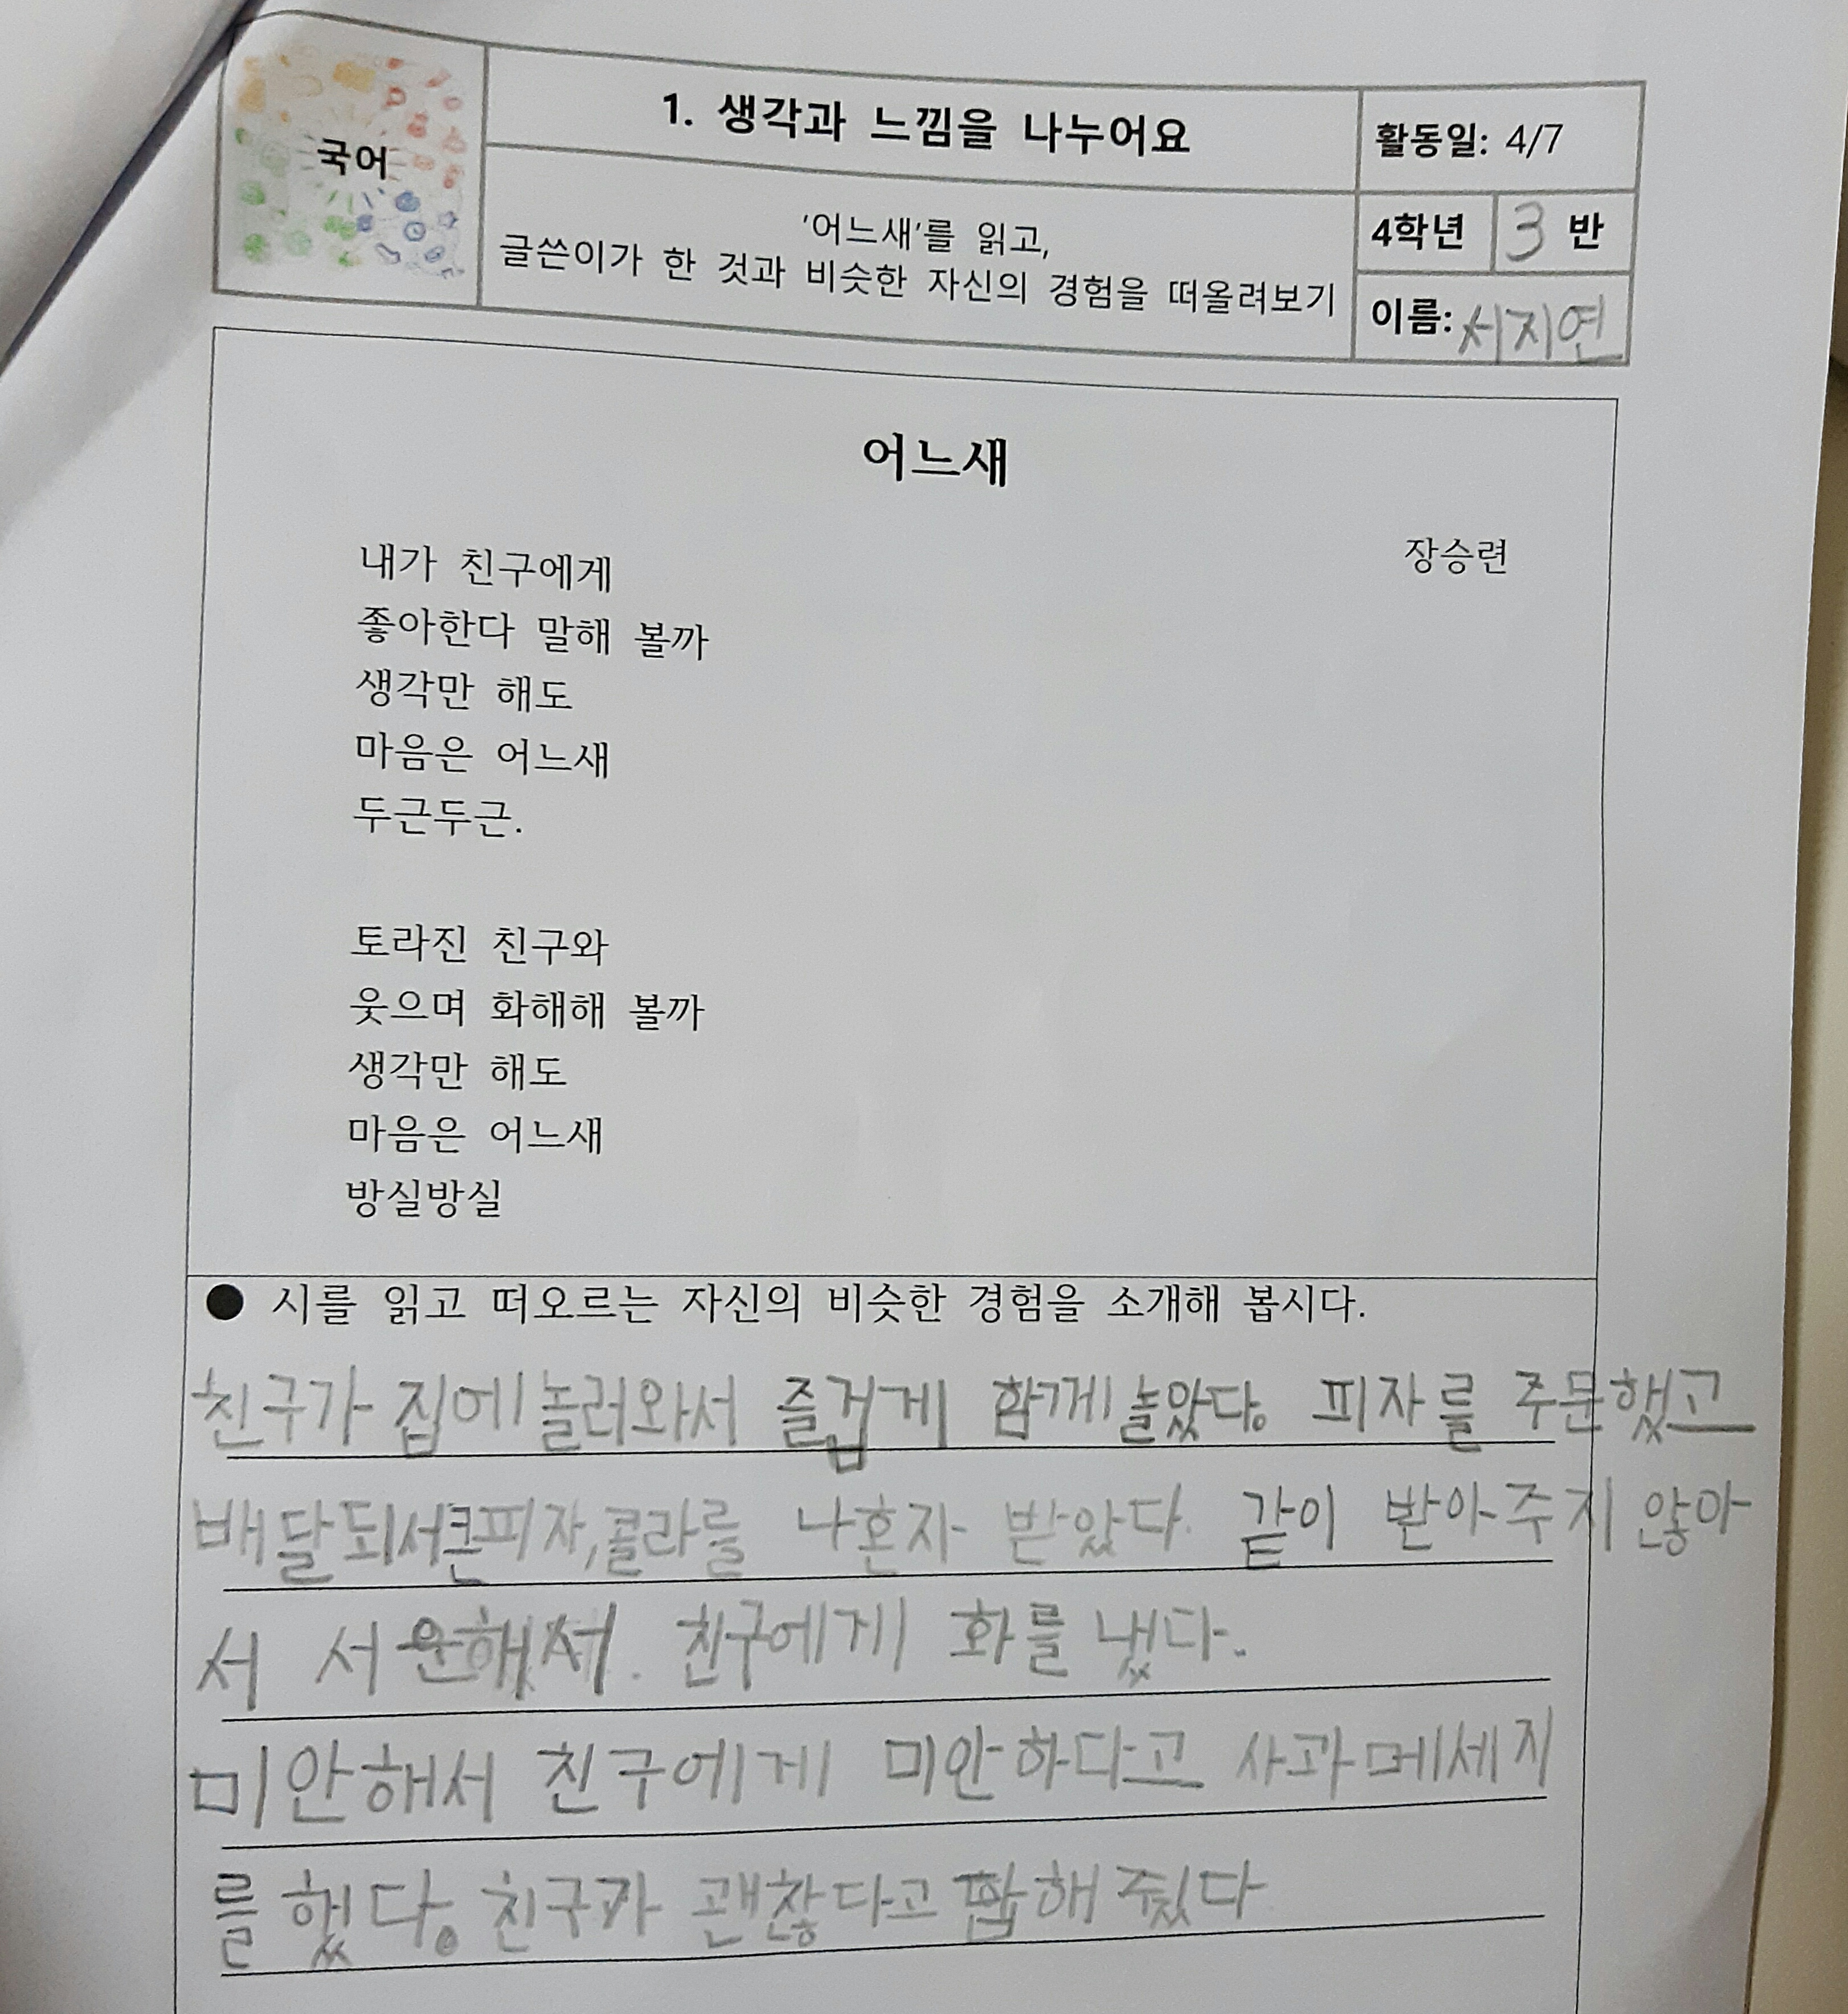 국어
1. 생각과 느낌을 나누어요
활동일: 4/7
'어느새'를 읽고,
글쓴이가 한 것과 비슷한 자신의 경험을 떠올려보기
4학년 3 반
이름: 서지연
어느새
장승련
내가 친구에게
좋아한다 말해 볼까
생각만 해도
마음은 어느새
두근두근.
토라진 친구와
웃으며 화해해 볼까
생각만 해도
마음은 어느새
방실방실
● 시를 읽고 떠오르는 자신의 비슷한 경험을 소개해 봅시다.
친구가 집에 놀러와서 즐겁게 함께 놀았다. 피자를 주문했고
배달되서 큰피자,콜라를 나혼자 받았다. 같이 받아주지 않아
서 서운해서. 친구에게 화를 냈다.
미안해서 친구에게 미안하다고 사과메세지
를 했다. 친구가 괜찮다고 해줬다